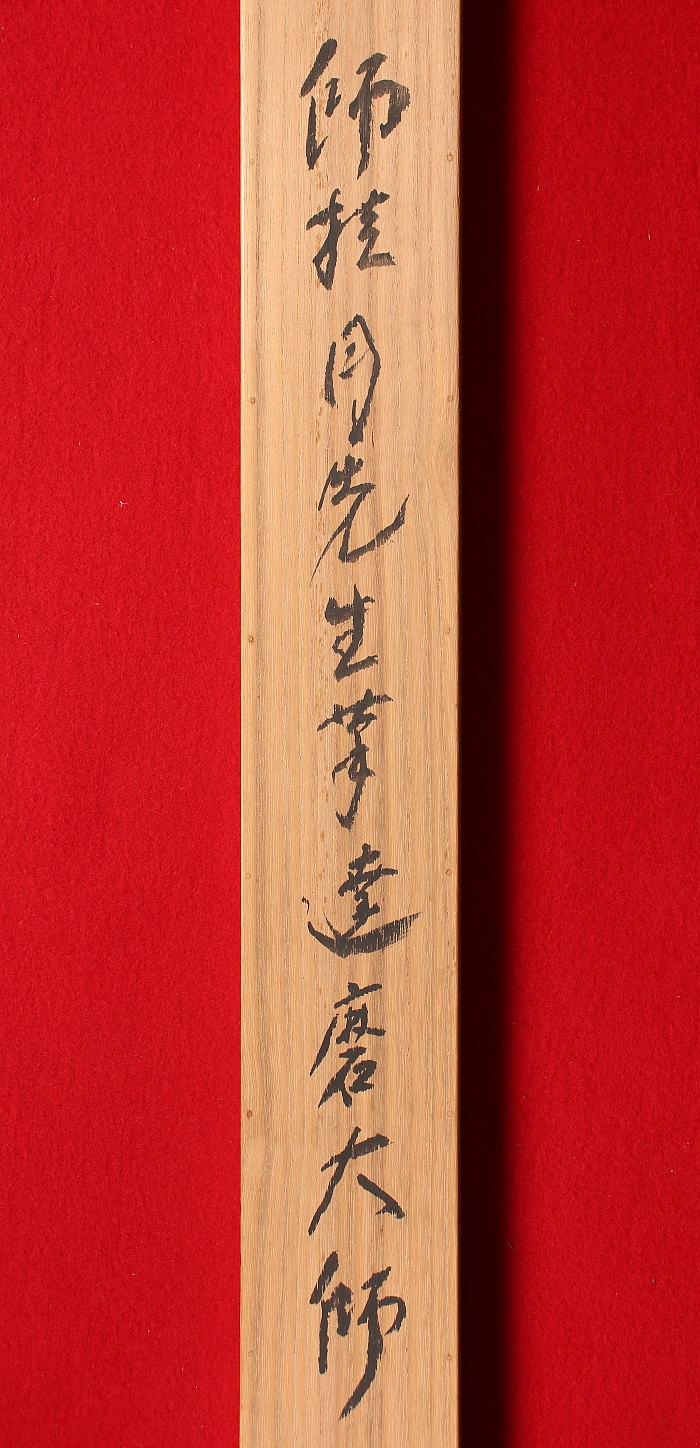 師桂月先生筆達磨大師